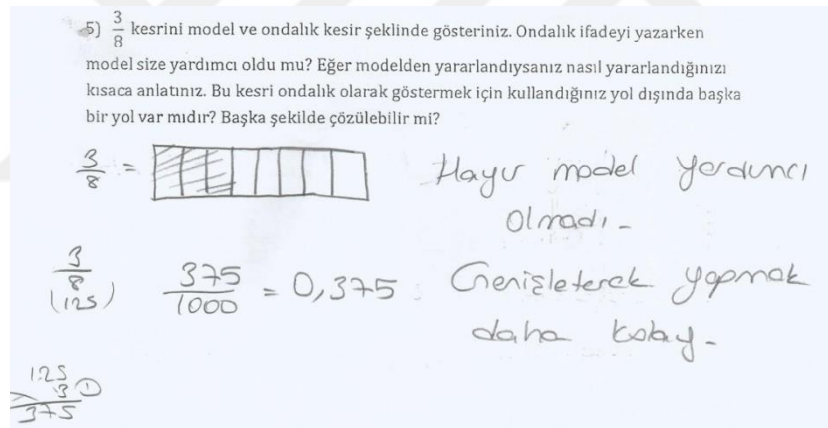 5) 3/8 kesrini model ve ondalık kesir şeklinde gösteriniz. Ondalık ifadeyi yazarken
model size yardımcı oldu mu? Eğer modelden yararlandıysanız nasıl yararlandığınızı
kısaca anlatınız. Bu kesri ondalık olarak göstermek için kullandığınız yol dışında başka
bir yol var mıdır? Başka şekilde çözülebilir mi?
3/8 =
Hayır model yardımcı
olmadı.
3/8
(125)
375/1000 = 0,375
Genişleterek yapmak
daha kolay.
125
3 1
375